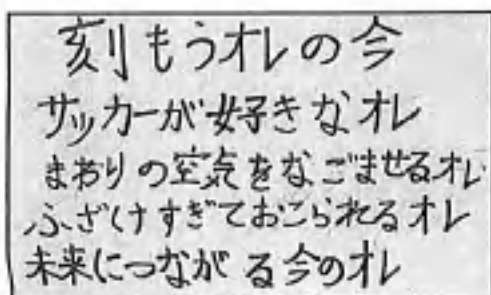 刻もうオレの今
サッカーが好きなオレ
まわりの空気をなごませるオレ
ふざけすぎておこられるオレ
未来につながる今のオレ